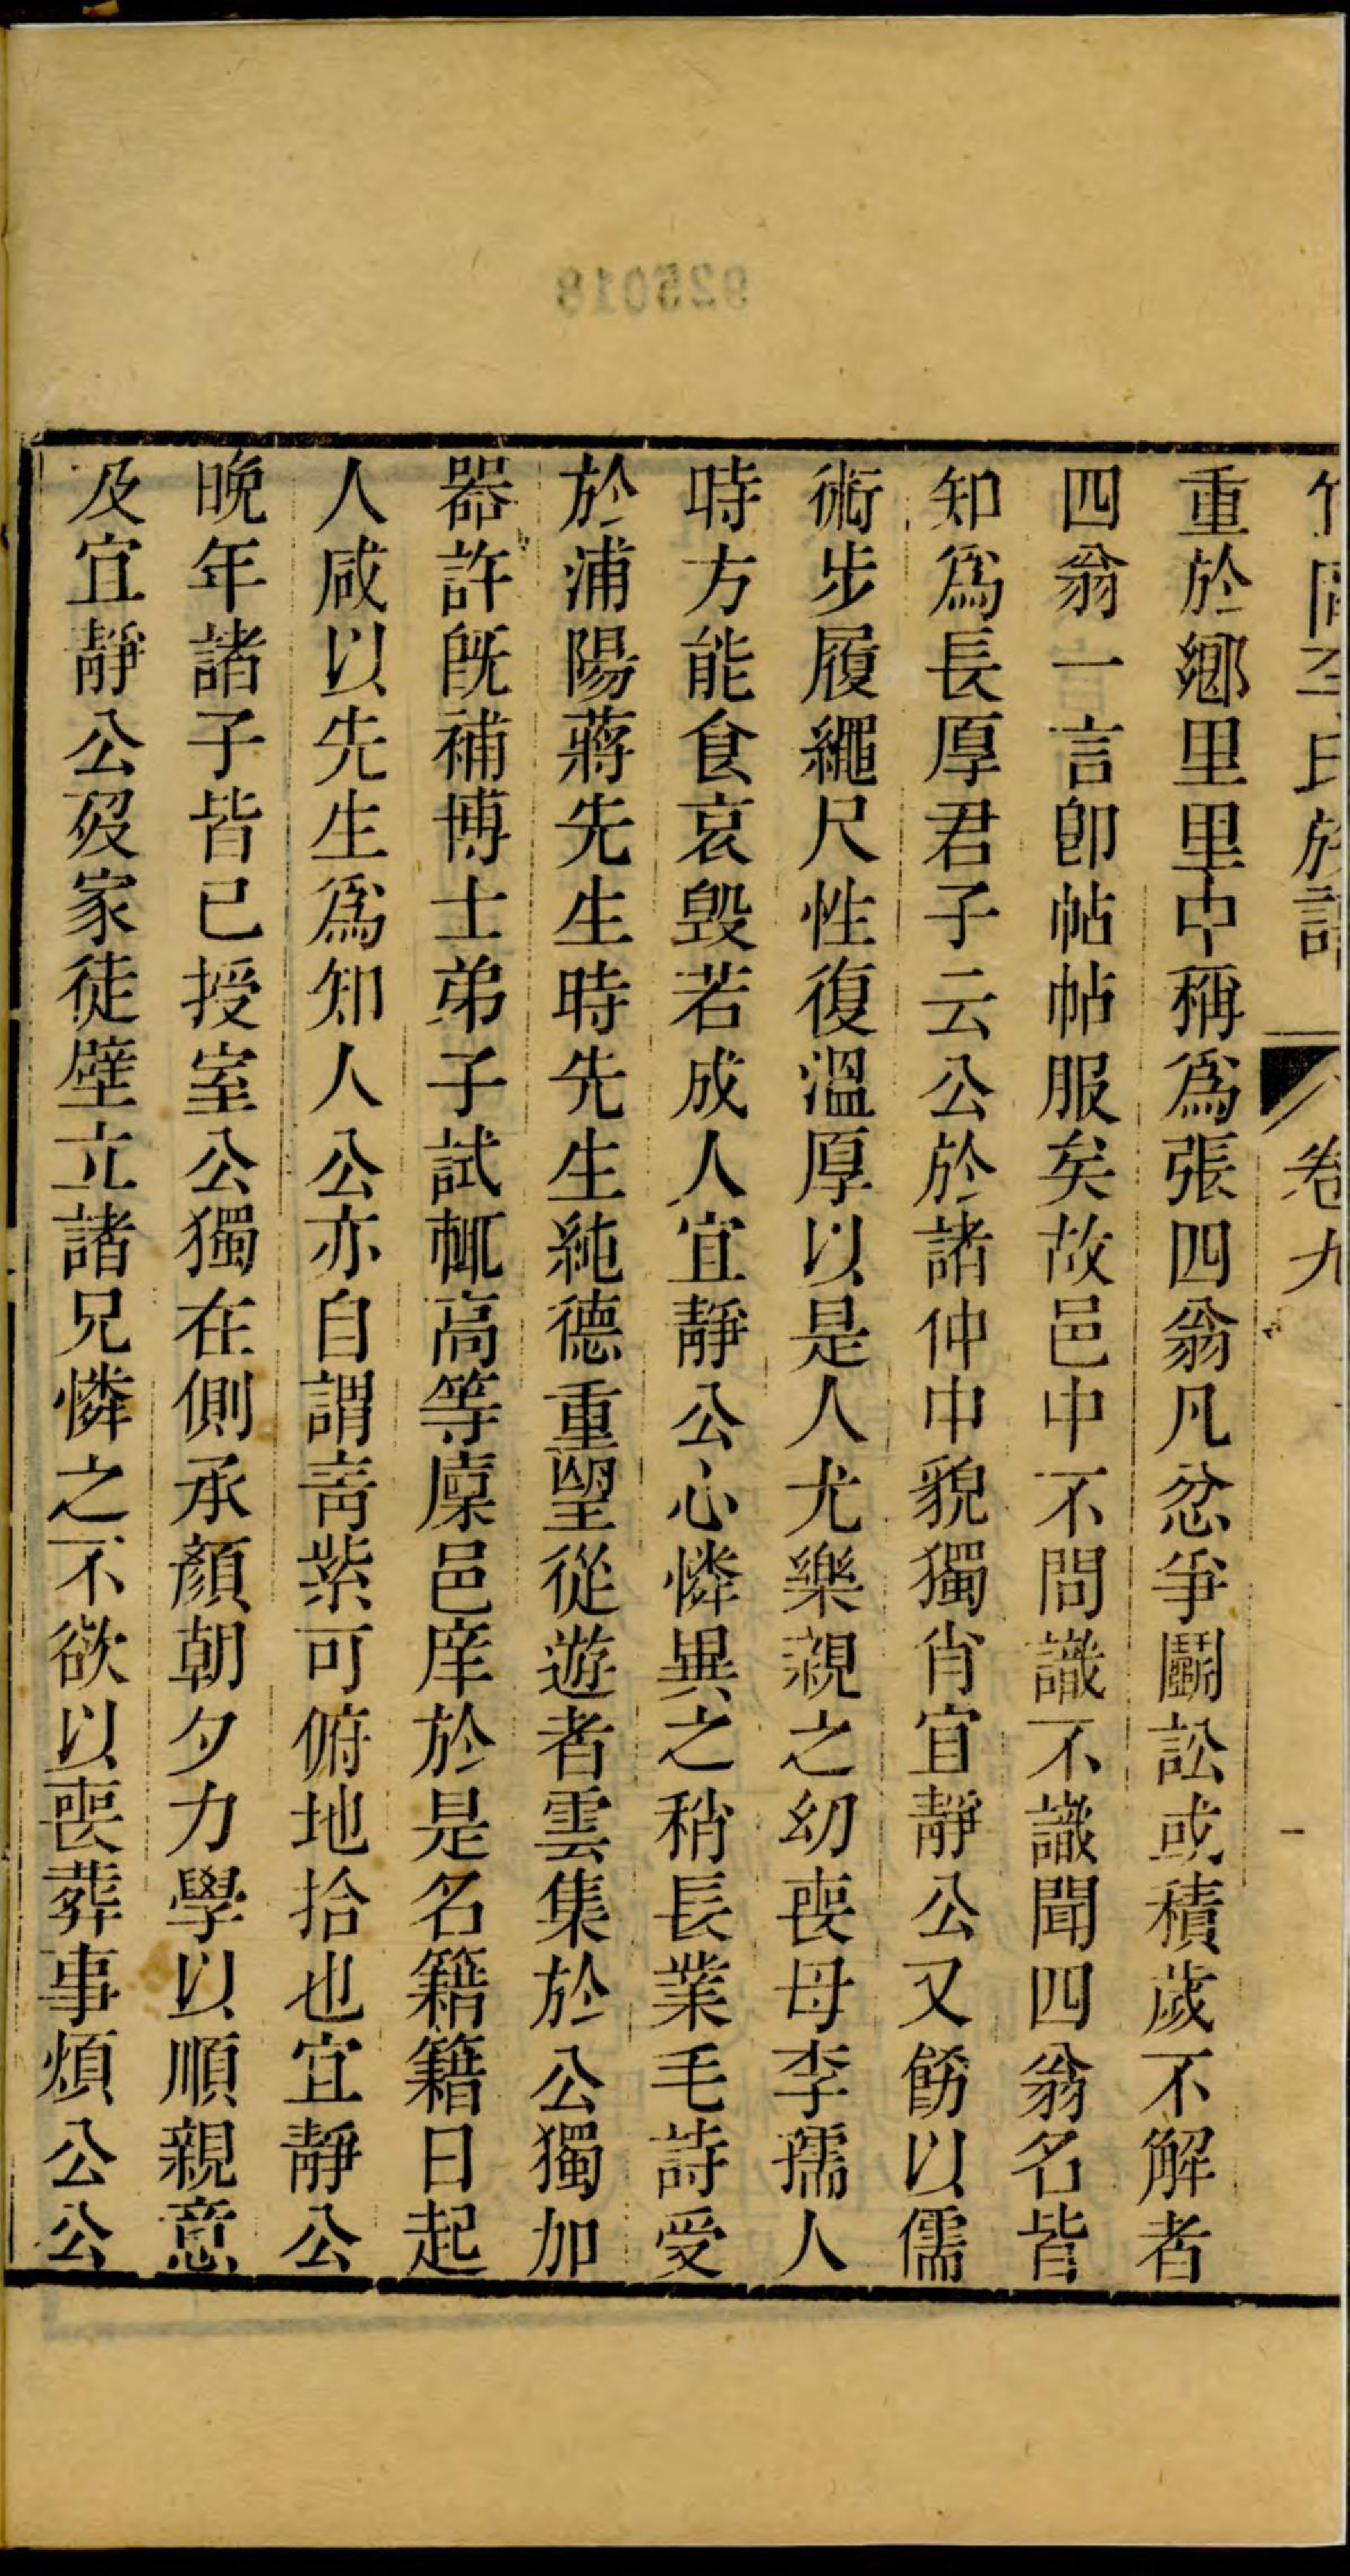 卷九
重於鄉里里中稱爲張四翁凡忿爭鬭訟或積歲不解者
四翁一言卽帖帖服矣故邑中不問識不識聞四翁名皆
知爲長厚君子云公於諸仲中貌獨肖宜靜公又餝以儒
術步履繩尺性復溫厚以是人尤樂親之幼喪母李孺人
時方能食哀毀若成人宜靜公心憐異之稍長業毛詩受
於浦陽蔣先生時先生純德重望從遊者雲集於公獨加
器許旣補博士弟子試輒高等廩邑庠於是名籍籍日起
人咸以先生爲知人公亦自謂靑紫可俯地拾也宜靜公
晚年諸子皆已授室公獨在側承顏朝夕力學以順親意
及宜靜公歿家徒壁立諸兄憐之不欲以喪葬事煩公公
925018